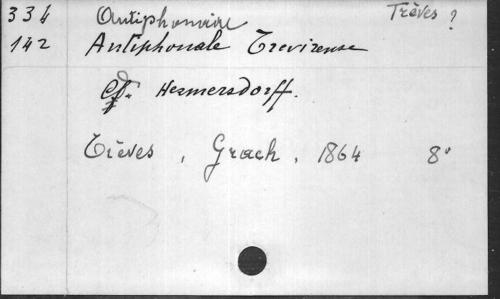 334 Antiphonaire Trèves ?
142 Antiphonale Trevirense
Cf. Hermersdorff.
Trèves, Grach, 1864 8°